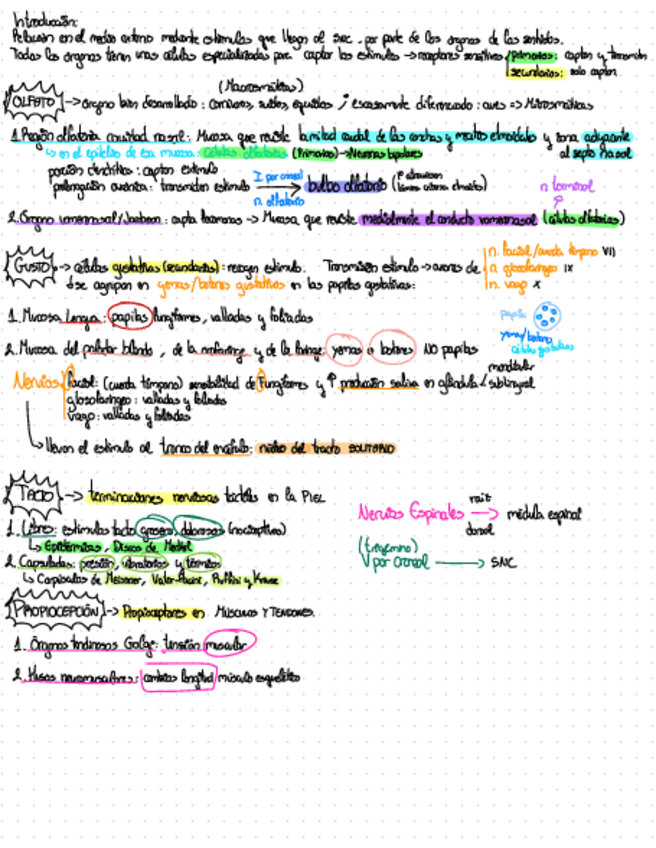 Introducción:
Relación en el medio externo mediante estímulos que llegan al SNC por parte de los órganos de los sentidos.
Todos los órganos tienen unas células especializadas para captar los estímulos → receptores sensitivos primarios: captan y transmiten
secundarios: solo captan
(Macrosmáticos)
OLFATO → órgano bien desarrollado: carnívoros, suidos, équidos ; escasamente diferenciado: aves => Microsmáticas
1. Región olfatoria cavidad nasal: Mucosa que reviste la mitad caudal de las conchas y meatos etmoidales y zona adyacente
↳ en el epitelio de esa mucosa: células olfatorias (Primarios) → Neuronas bipolares
al septo nasal
porción dendrítica: captan estímulo
prolongación axónica: transmiten estímulo
I par craneal
n. olfatorio
→ bulbo olfatorio
n terminal
2. Órgano vomeronasal/Jacobson: capta feromonas → Mucosa que reviste medialmente el conducto vomeronasal (células olfatorias)
GUSTO → células gustativas (secundarios): recogen estímulo. Transmisión estímulo → axones de
n. facial/cuerda tímpano VII
n. glosofaríngeo IX
n. vago X
se agrupan en yemas/botones gustativos en las papilas gustativas:
1. Mucosa Lengua: papilas fungiformes, valladas y foliadas
papila
yema/botones
células gustativas
2. Mucosa del paladar blando, de la orofaringe y de la faringe: yemas o botones NO papilas
Nervios
facial: (cuerda tímpano) sensibilidad de Fungiformes y ↑ producción saliva en glándula
mandibular
sublingual
glosofaríngeo: valladas y foliadas
vago: valladas y foliadas
↳ llevan el estímulo al tronco del encéfalo: núcleo del tracto SOLITARIO
TACTO → terminaciones nerviosas táctiles en la PIEL
1. Libres: estímulos tacto grosero, dolorosos (nociceptivo)
↳ Epidermitas, Discos de Merkel
2. Capsuladas: presión, vibratorios y térmicos
↳ Corpúsculos de Meissner, Vater-Pacini, Ruffini y Krause
Nervios Espinales → médula espinal
raíz
dorsal
(Trigémino)
V par craneal → SNC
PROPIOCEPCIÓN → Propioceptores en MÚSCULOS Y TENDONES.
1. Órganos tendinosos Golgi: tensión muscular
2. Husos neuromusculares: cambios longitud músculo esquelético